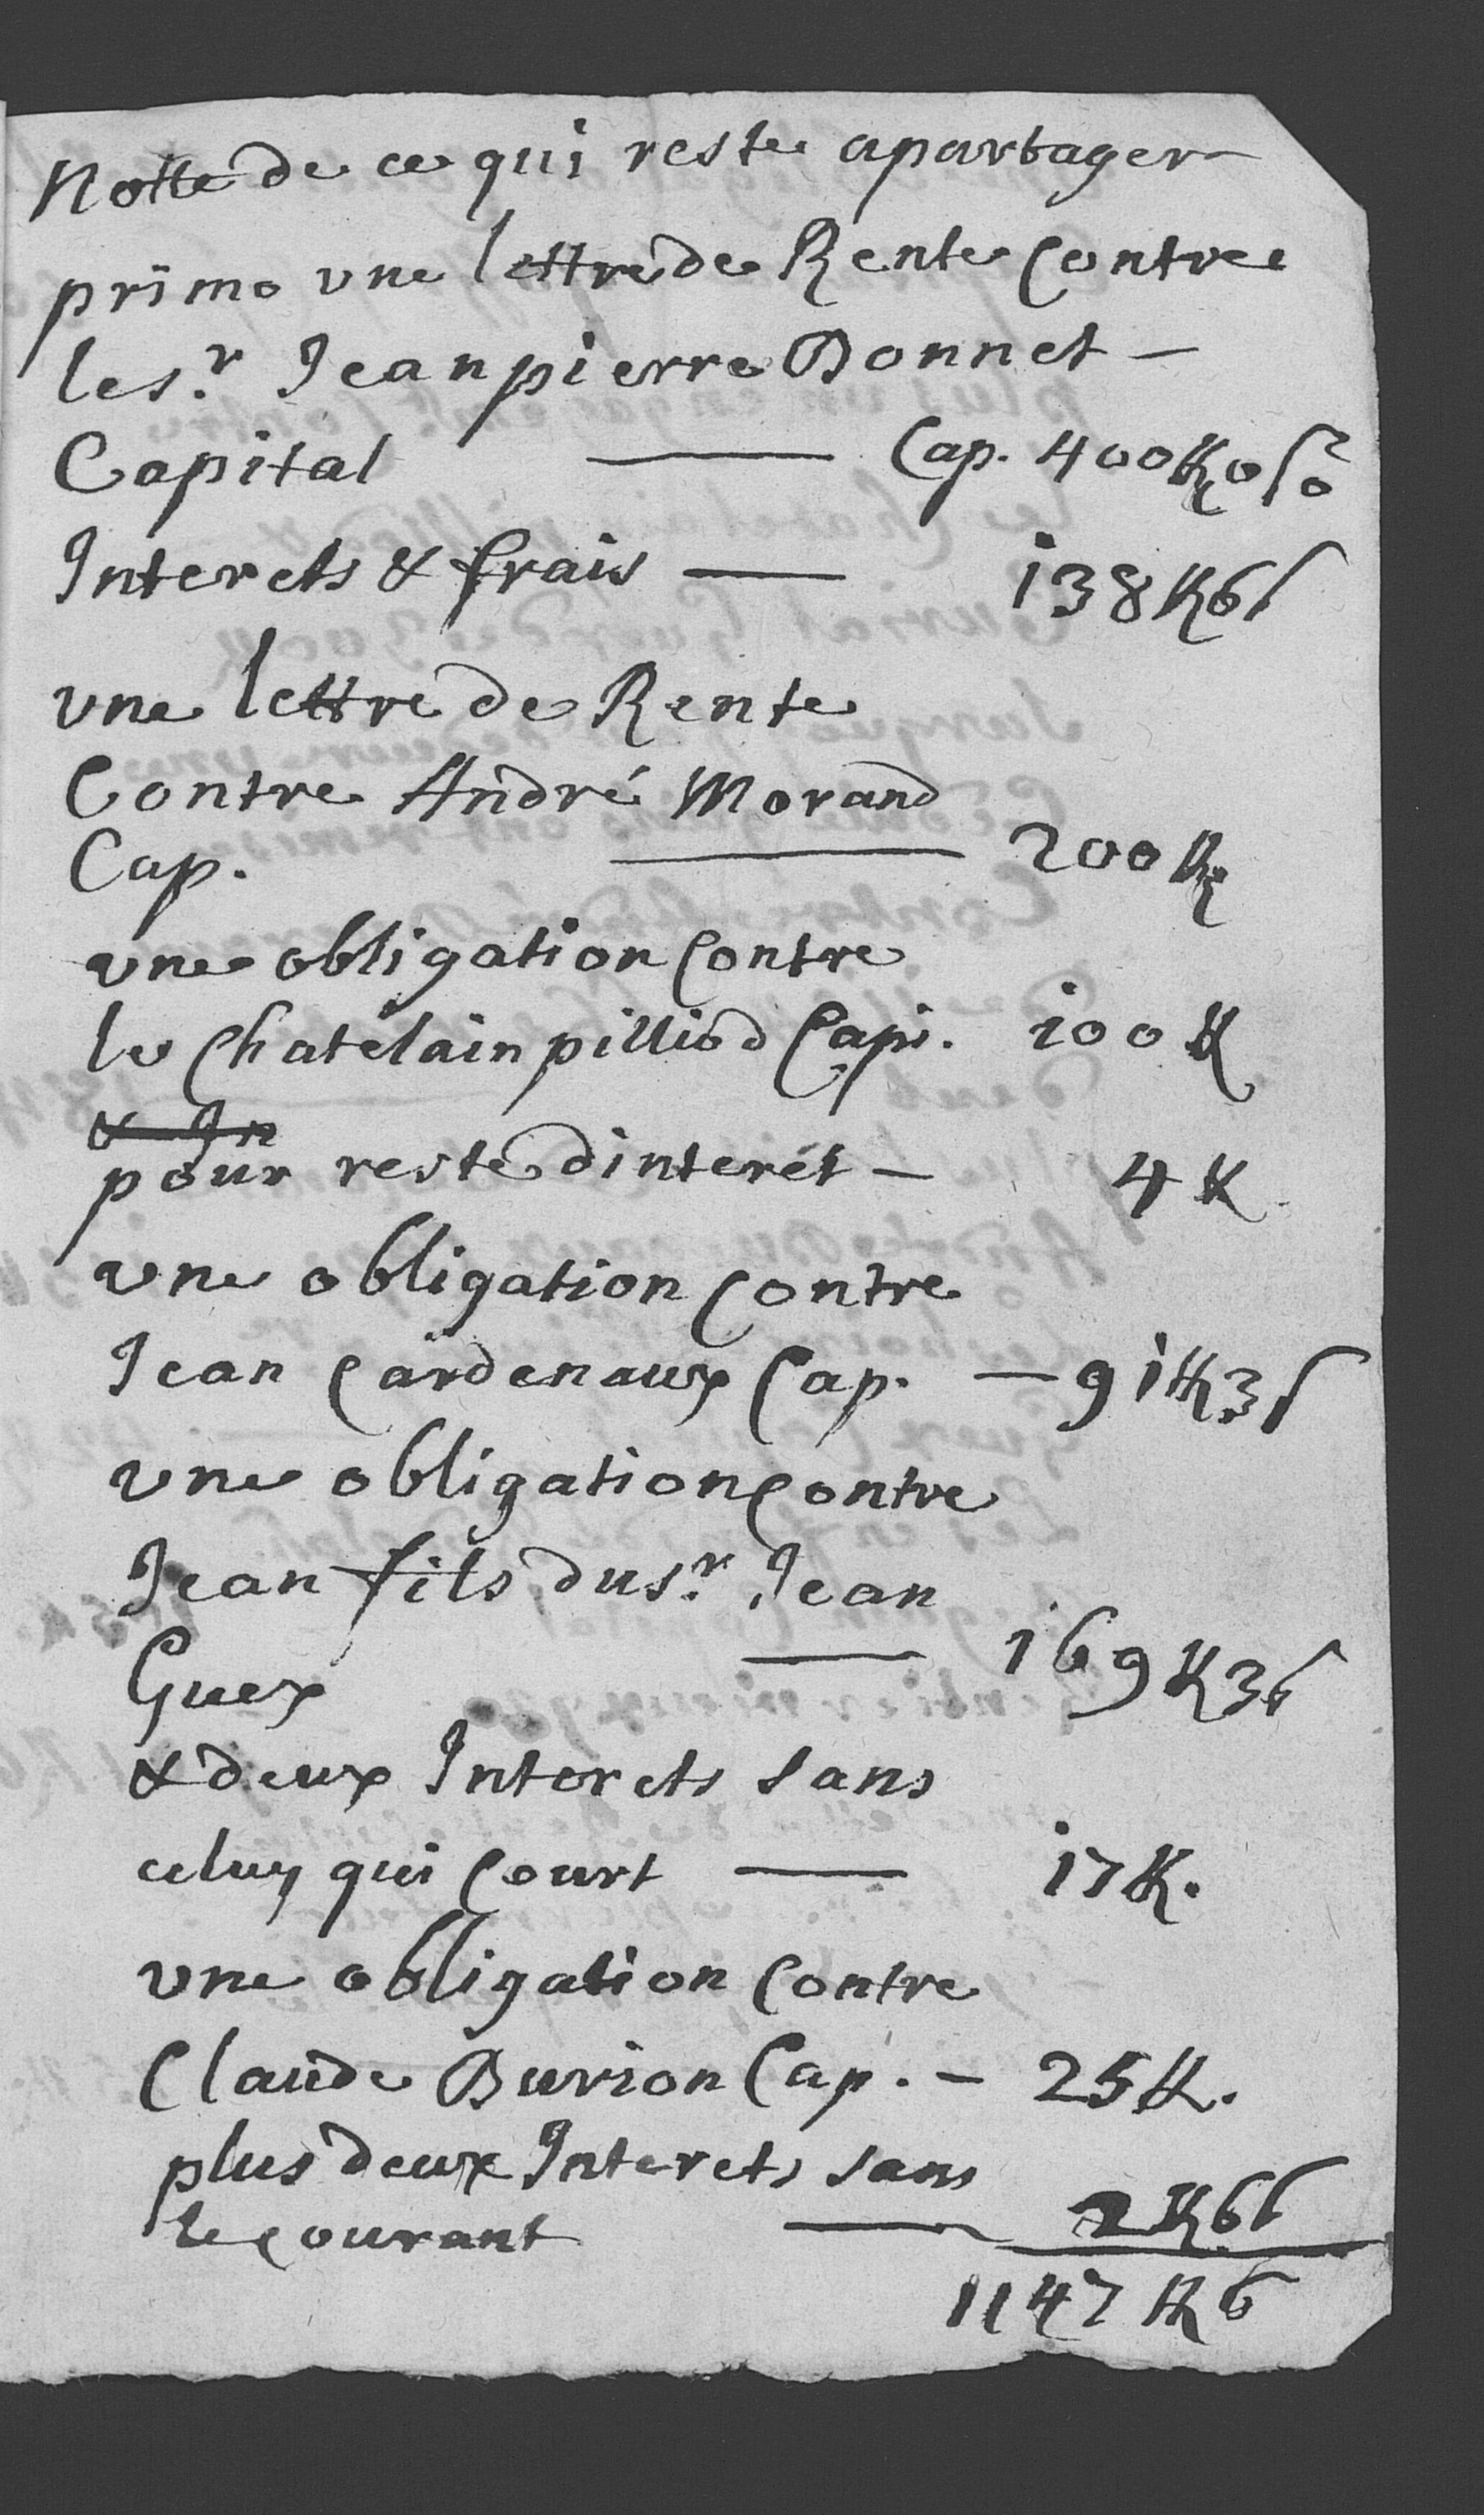 Notte de ce qui reste apartager
primo une lettre de Rente Contre
le s.r Jean pierre Bonnet —
Capital —— Cap. 400 ℔ 0 ſ 0
Interets & frais — 138 ℔ 6 ſ
une lettre de Rente
Contre André Morand
Cap. —— 200 ℔
une obligation Contre
le Chatelain pilliod Capi. 100 ℔
& In
pour reste dinterét — 4 ℔
une obligation Contre
Jean Cardenaux Cap. — 91 ℔ 3 ſ
une obligation Contre
Jean fils du s.r Jean
Guex —— 169 ℔ 3 ſ
& deux Interets sans
celuy qui Court —— 17 ℔.
une obligation Contre
Claude Burion Cap. — 25 ℔.
plus deux Interets sans
le Courant —— 2 ℔ 6 ſ
1147 ℔ 6